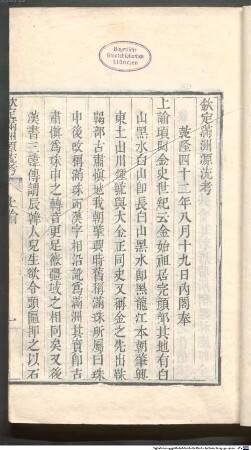 欽定滿洲源流考
乾隆四十二年八月十九日內閣奉
上諭頃閱金史世紀云金始祖居完顏部其地有白
山黑水白山即長白山黑水即黑龍江本朝肇興
東土山川鍾毓與大金正同史又稱金之先出靺
鞨部古肅愼地我朝肇興時舊稱滿珠所屬曰珠
申後改稱滿珠而漢字相沿訛爲滿洲其實即古
肅愼爲珠申之轉音更足徵疆域之相同矣又後
漢書三韓傳謂辰韓人兒生欲令頭匾押之以石
欽定滿洲源流考
上諭
一
Bayerische
Staatsbibliothek
München